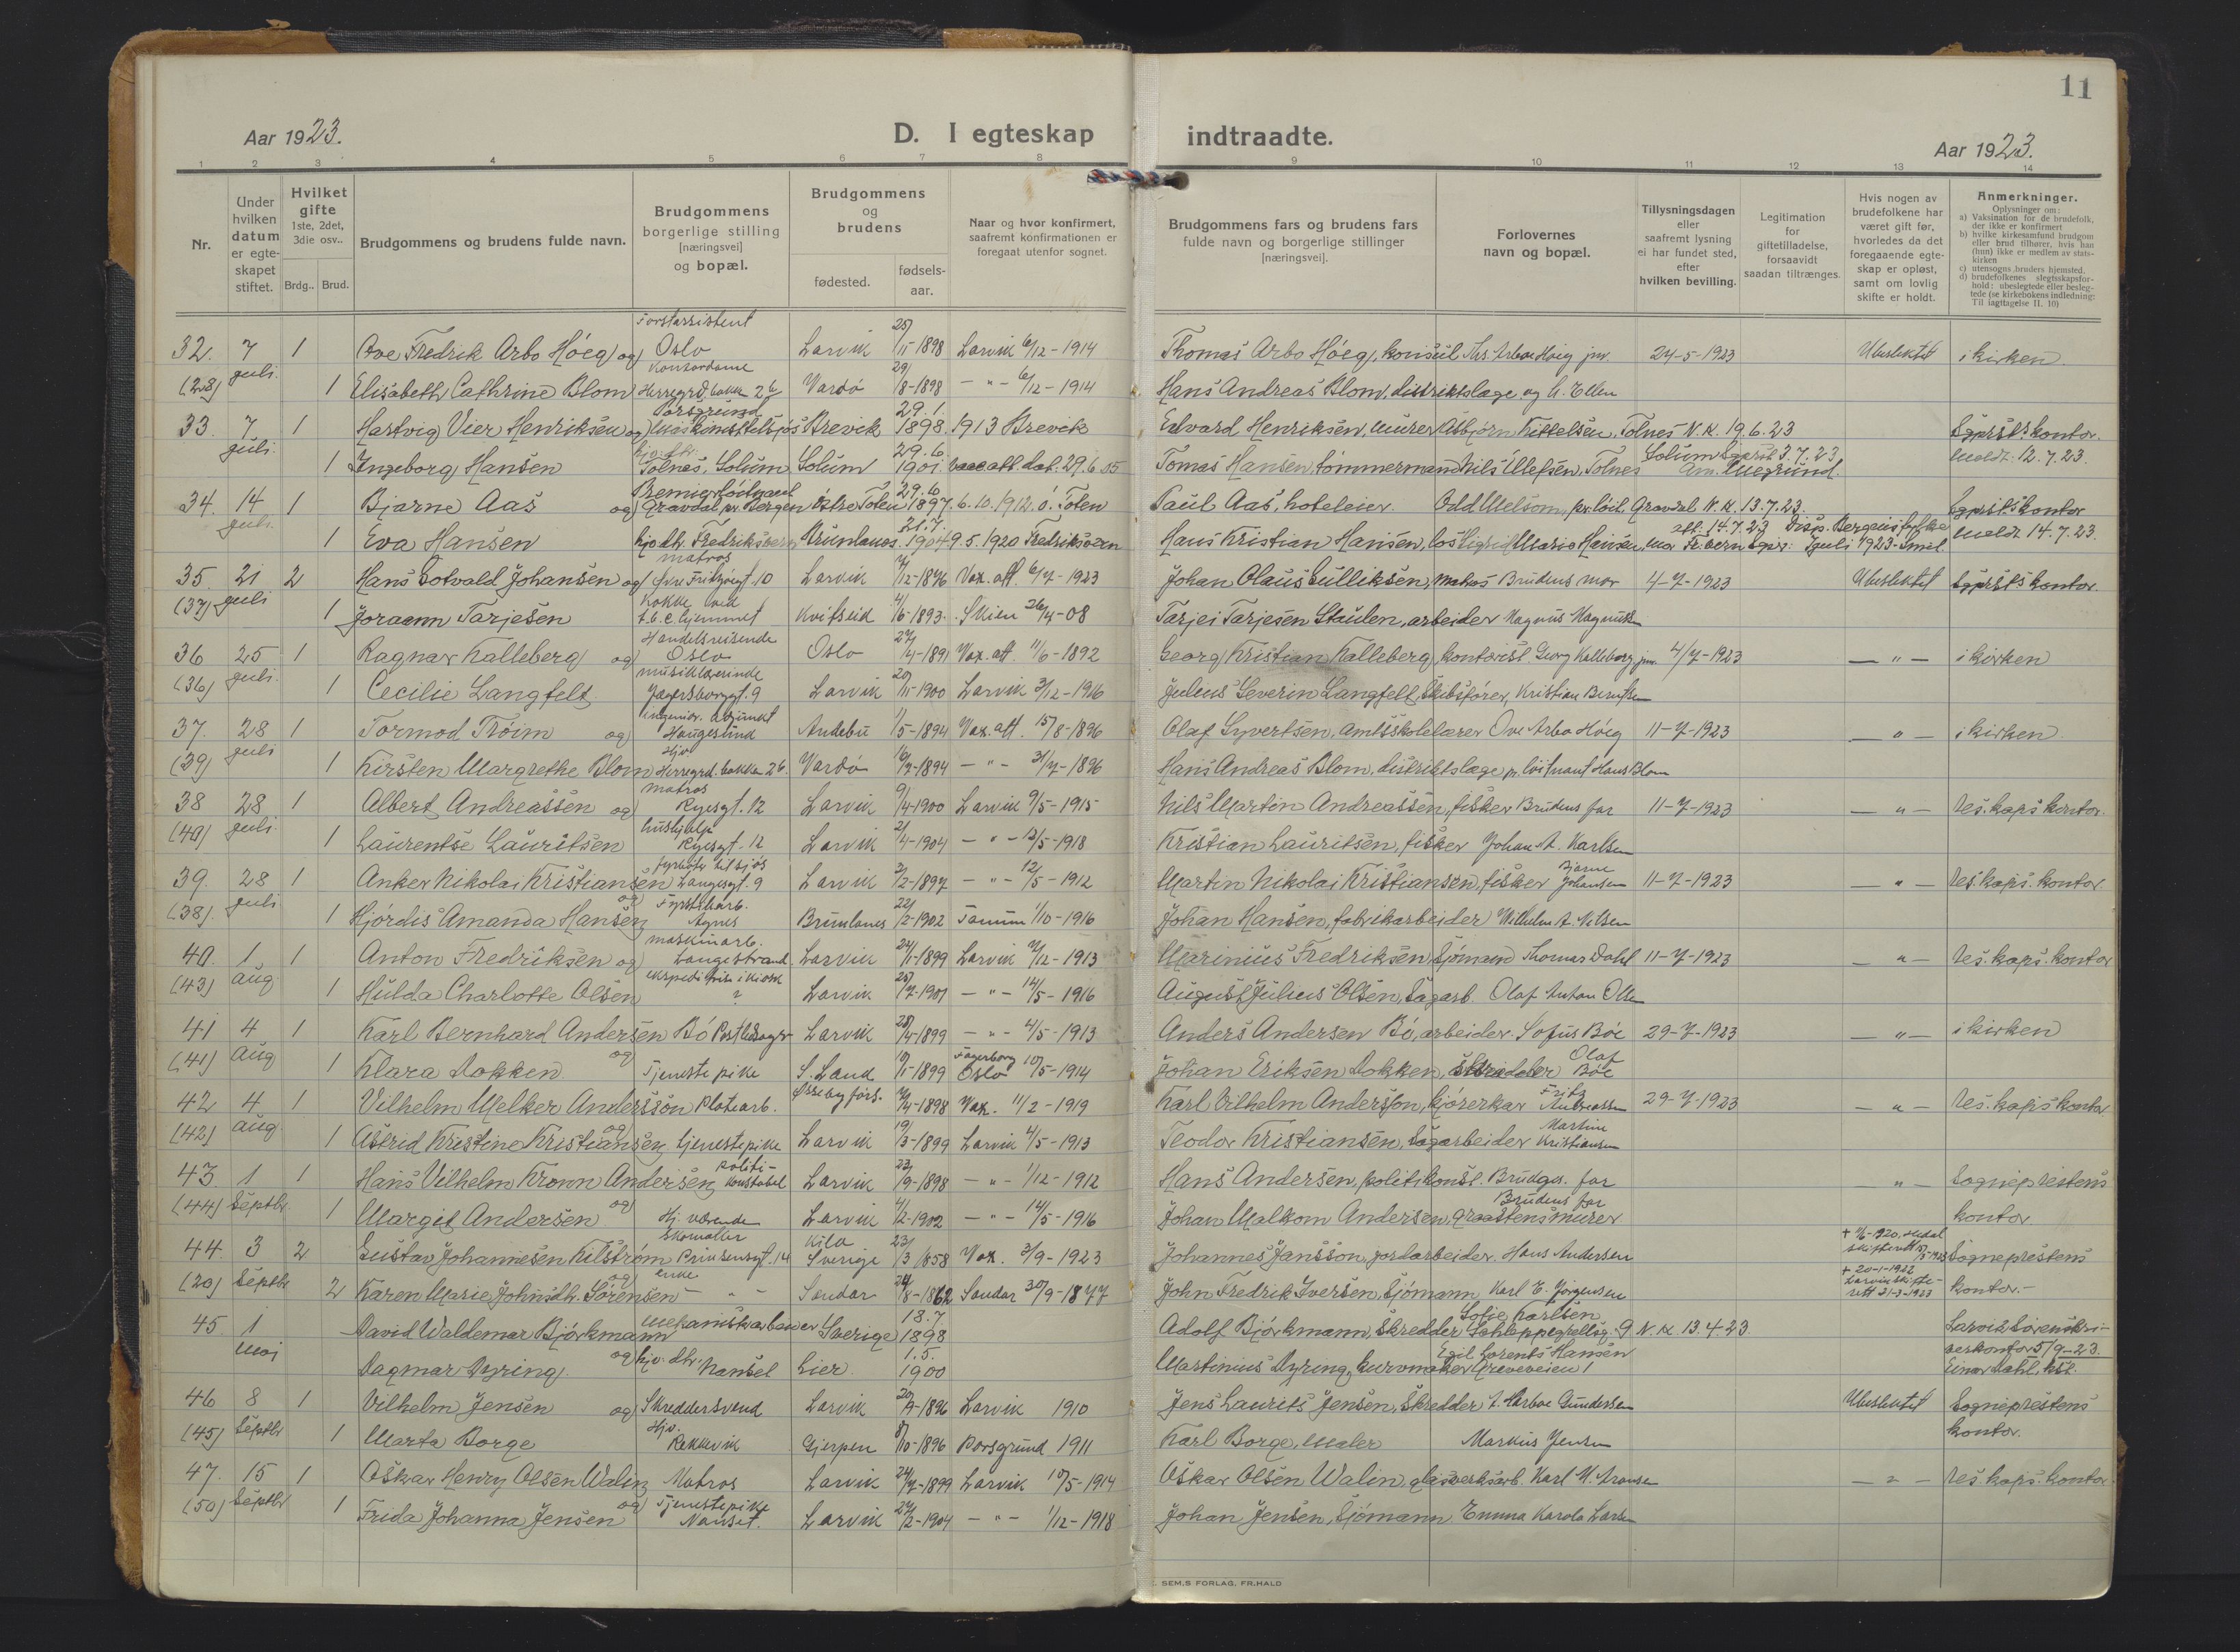 11
Aar 1923.
D. I egteskap indtraadte.
Aar 1923.
1 2 3 4 5 6 7 8 9 10 11 12 13 14
Nr.
Under hvilken datum er egteskapet stiftet.
Hvilket gifte 1ste, 2det, 3die osv..
Brdg.. Brud.
Brudgommens og brudens fulde navn.
Brudgommens borgerlige stilling [næringsvei] og bopæl.
Brudgommens og brudens
fødested.
fødselsaar.
Naar og hvor konfirmert, saafremt konfirmationen er foregaat utenfor sognet.
Brudgommens fars og brudens fars fulde navn og borgerlige stillinger [næringsvei].
Forlovernes navn og bopæl.
Tillysningsdagen eller saafremt lysning ei har fundet sted, efter hvilken bevilling.
Legitimation for giftetilladelse, forsaavidt saadan tiltrænges.
Hvis nogen av brudefolkene har været gift før, hvorledes da det foregaaende egteskap er opløst, samt om lovlig skifte er holdt.
Anmerkninger.
Oplysninger om:
a) Vaksination for de brudefolk, der ikke er konfirmert
b) hvilke kirkesamfund brudgom eller brud tilhører, hvis han (hun) ikke er medlem av statskirken
c) utensogns bruders hjemsted.
d) brudefolkenes slegtsskapsforhold: ubeslegtede eller beslegtede (se kirkebokens indledning: Til iagttagelse II. 10)
32. 7 1 Ove Fredrik Arbo Höeg og Forstassistent Oslo Larvik 25/11-1898 Larvik 6/12-1914 Thomas Arbo Höeg, konsul Ths. Arbo Höeg jnr. 24-5-1923 Ubeslektet i kirken
(28) juli 1 Elisabeth Cathrine Blom Kontordame Herregrd.bakke 26 Vardö 29/8-1898 - " - 6/12-1914 Hans Andreas Blom, distriktslæge
33. 7 1 Hartvig Vier Henriksen og Porsgrund Brevik 29.1. 1898. 1913 Brevik Edvard Henriksen, murer Asbjørn Kittelsen, Tolnes N.K. 19.6.23 Sgprsts kontor.
juli. 1 Ingeborg Hansen hjv. dtr. Tolnes, Solum Solum 29.6. 1901. Tomas Hansen, tömmermand Nils Ulefsen, Tolnes Solum Sgprst 3.7.23 Meldt. 12.7.23.
34. 14 1 Bjarne Aas og Premierlöitnant Gravdal pr. Bergen Östre Toten 29.6. 1897. 6.10.1912. Ö. Toten Paul Aas, hoteleier. Odd Melsom, pr.löit. Gravdal N.K. 13.7.23. Sgprsts kontor
juli. 1 Eva Hansen hjv. dtr. Fredriksvern Brunlanes 21.7. 1904 9.5.1920 Fredriksvern Hans Kristian Hansen, los Meldt 14.7.23.
35. 21 2 Hans Totvald Johansen og matros Larvik 7/12-1896 Vax.att. 6/7-1923 Johan Olaus Gulliksen, matros Brudens mor 4-7-1923 Ubeslektet Sgprsts kontor.
(37) juli 1 Joraann Tarjesen Kokke ved t.b.c. hjemmet Kvitseid 4/6-1893. Skien 26/4-08 Tarjei Tarjesen Staulen, arbeider
36 25 1 Ragnar Kalleberg og Handelsreisende Oslo Oslo 27/4-1891 Vax.att. 11/6-1892 Georg Kristian Kalleberg, kontorist Georg Kalleberg jnr. 4/7-1923 - " - i kirken
(36) juli. 1 Cecilie Langfelt musiklærerinde Jegersborggt. 9 Larvik 20/11-1900 Larvik 3/12-1916 Julius Severin Langfelt, Skibsförer, Kristian Berntsen
37. 28 1 Tormod Tröim og ingeniör Haugesund Andebu 1/5-1894 Vax.att. 15/8-1896 Olaf Syvertsen, amtsskolelærer Ove Arbo Höeg 11-7-1923 - " - i kirken.
(39) juli 1 Kirsten Margrethe Blom Hjv. Herregrd.bakken 26. Vardö 16/7-1894 - " - 3/7-1896 Hans Andreas Blom, distriktslæge pr. löitnant Hans Blom
38 28 1 Albert Andreassen og matros Ryesgt. 12 Larvik 9/4-1900 Larvik 9/5-1915 Nils Martin Andreassen, fisker Brudens far 11-7-1923 - " - Res.kaps kontor.
(40) juli. 1 Laurentse Lauritsen hushjælp Ryesgt. 12 Larvik 2/4-1904 - " - 12/5-1918 Kristian Lauritsen, fisker Johan A. Karlsen
39. 28 1 Anker Nikolai Kristiansen og fyrböter tilsjös Langesgt. 9 Larvik 3/2-1897 - " - 12/5-1912 Martin Nikolai Kristiansen, fisker Bjarne Johansen 11-7-1923 - " - Res.kaps. kontor
(38). juli 1 Hjördis Amanda Hansen Fyrstikarb. Agnes Brunlanes 22/2-1902 Tanum 1/10-1916 Johan Hansen, fabrikarbeider Wilhelm A. Nilsen
40. 1 1 Anton Fredriksen og maskinarb. Langestrand Larvik 24/1-1899 Larvik 7/12-1913 Marinius Fredriksen, Sjömand Thomas Dahl 11-7-1923 - " - Res.kaps. kontor
(43) aug 1 Hulda Charlotte Olsen ekspeditrise i kiosk ? Larvik 25/7-1901 - " - 14/5-1916 August Julius Olsen, Sagarb. Olaf Anton Olsen
41 4 1 Karl Bernhard Andersen Bö og Larvik 28/4-1899 - " - 4/5-1913 Anders Andersen Bö, arbeider. Sofus Böe 29-7-1923 - " - i kirken
(41) aug 1 Klara Dokken Tjenestepike S. Land 10/1-1899 Fagerborg Oslo 10/5-1914 Johan Eriksen Dokken, skrædder Olaf Böe
42 4 1 Vilhelm Melker Andersson og Platearb. 7/4-1898 Vax. 11/2-1919 Karl Vilhelm Andersson, kjörerkar Fritz Andreassen 29-7-1923 - " - Res.kaps kontor
(42) aug 1 Astrid Kristine Kristiansen, tjenestepike Larvik 19/3-1899 Larvik 4/5-1913 Teodor Kristiansen, Sagarbeider Martin Kristiansen
43. 1 1 Hans Vilhelm Kronn Andersen, og Politikonstabel Larvik 23/9-1898 - " - 1/12-1912 Hans Andersen, politikonst. Brudgs. far - " - Sogneprestens
(44) Septbr. 1 Margit Andersen Hj. værende Larvik 4/2-1902 - " - 14/5-1916 Johan Malkom Andersen, graastensmurer Brudens far kontor.
44. 3 2 Gustav Johannesen Kilström og Skomaker Prinsensgt. 14 Kila Sverige 23/3 1858 Vax. 3/9-1923 Johannes Jansson, jordarbeider. Hans Andersen Sogneprestens
(20) Septbr 2 Karen Marie Johnsdtr. Sörensen enke - " - Sandar 24/8-1862 Sandar 30/9-1877 John Fredrik Iversen, Sjömann Karl E. Jörgensen + 20-1-1922 Larvik skifterett 21-3-1923 kontor.-
45 1 David Waldemar Björkmann og mekanisk arbeider Sverige 18.7. 1898 Adolf Björkmann, Skredder Sofie Karlsen Schleppegrellsg. 9 N.K. 13.4.23. Larvik Sorenskriverkontor 5/9-23.
Mai Dagmar Dyring hjv. dtr. Nanset Lier 1.5. 1900 Martinius Dyring, kurvmaker Egil Lorents Hansen Greveveien 1 Einar Dahl, kst.
46 8 1 Vilhelm Jensen og Skreddersvend Larvik 20/9-1896 Larvik 1910 Jens Laurits Jensen, Skredder Gundersen Ubeslektet Sogneprestens
(45) Septbr 1 Marta Borge Hjv. Rekkevik Gjerpen 8/10-1896 Porsgrund 1911 Karl Borge, Maler Markus Jensen kontor.
47. 15 1 Oskar Henry Olsen Walin og Matros Larvik 24/7-1899 Larvik 10/5-1914 Oskar Olsen Walin, glasverksarb. Karl M. Aronsen - " - Res.kaps. kontor
(50) Septbr 1 Frida Johanna Jensen Tjenestepike Nanset. Larvik 27/2-1904 - " - 1/12-1918 Johan Jensen, Sjömann Emma Karola Larsen
SEM.S FORLAG, FR.HALD